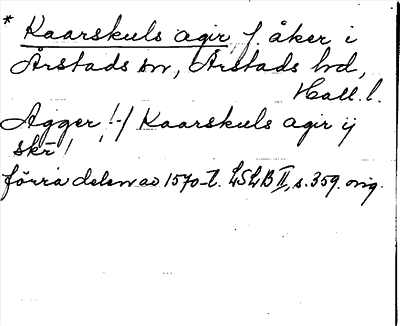 * Kaarskuls agir, f. åker i
Årstads sn, Årstads hd,
Hall. l.
Agger /:/ Kaarskuls agir ij
skr!
förra delen av 1570-t. LSLB II, s. 359. orig.